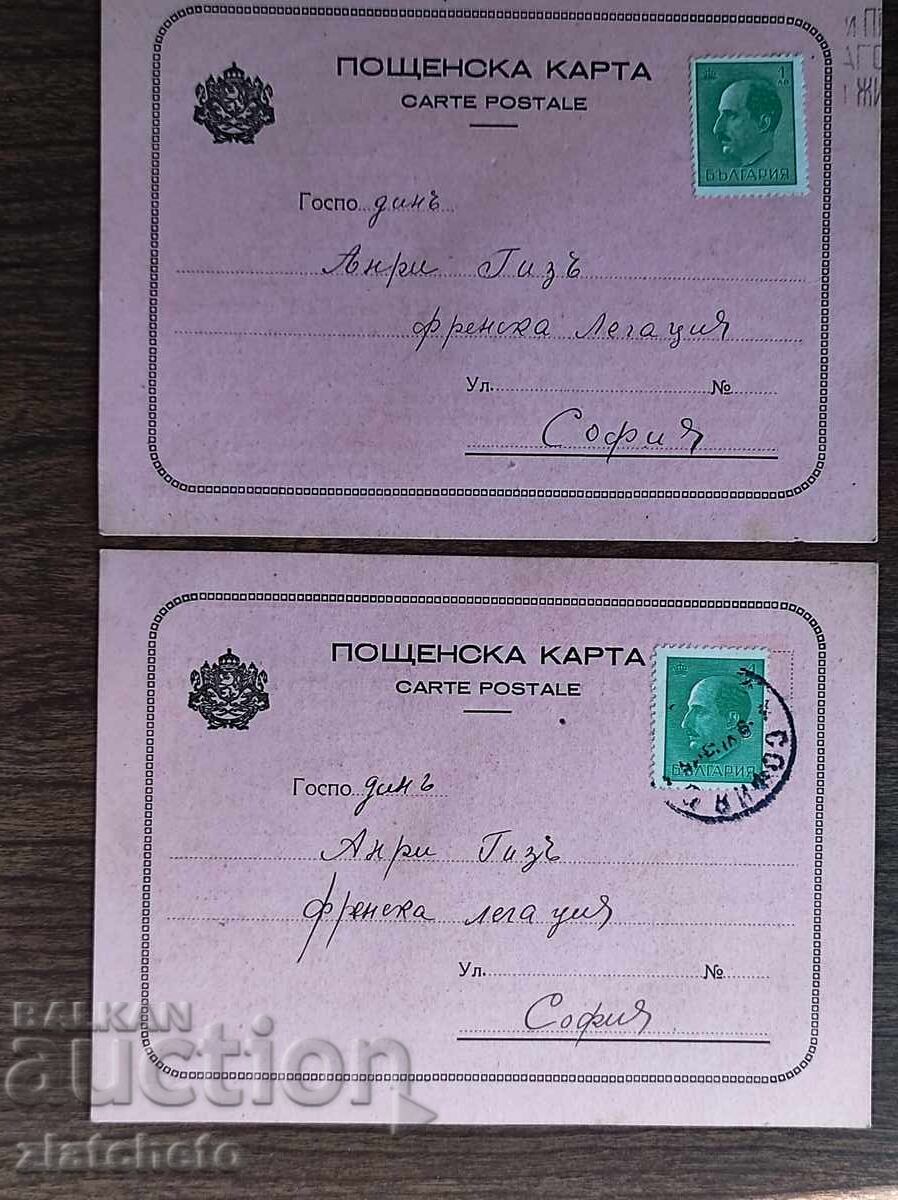 ПОЩЕНСКА КАРТА
CARTE POSTALE
1 ЛВ
БЪЛГАРИЯ
Господинъ
Анри Гизъ
френска Легация
Ул. №
София
ПОЩЕНСКА КАРТА
CARTE POSTALE
БЪЛГАРИЯ
СОФИЯ
Господинъ
Анри Гизъ
френска легация
Ул. №
София
BALKAN
auction
zlatchefo